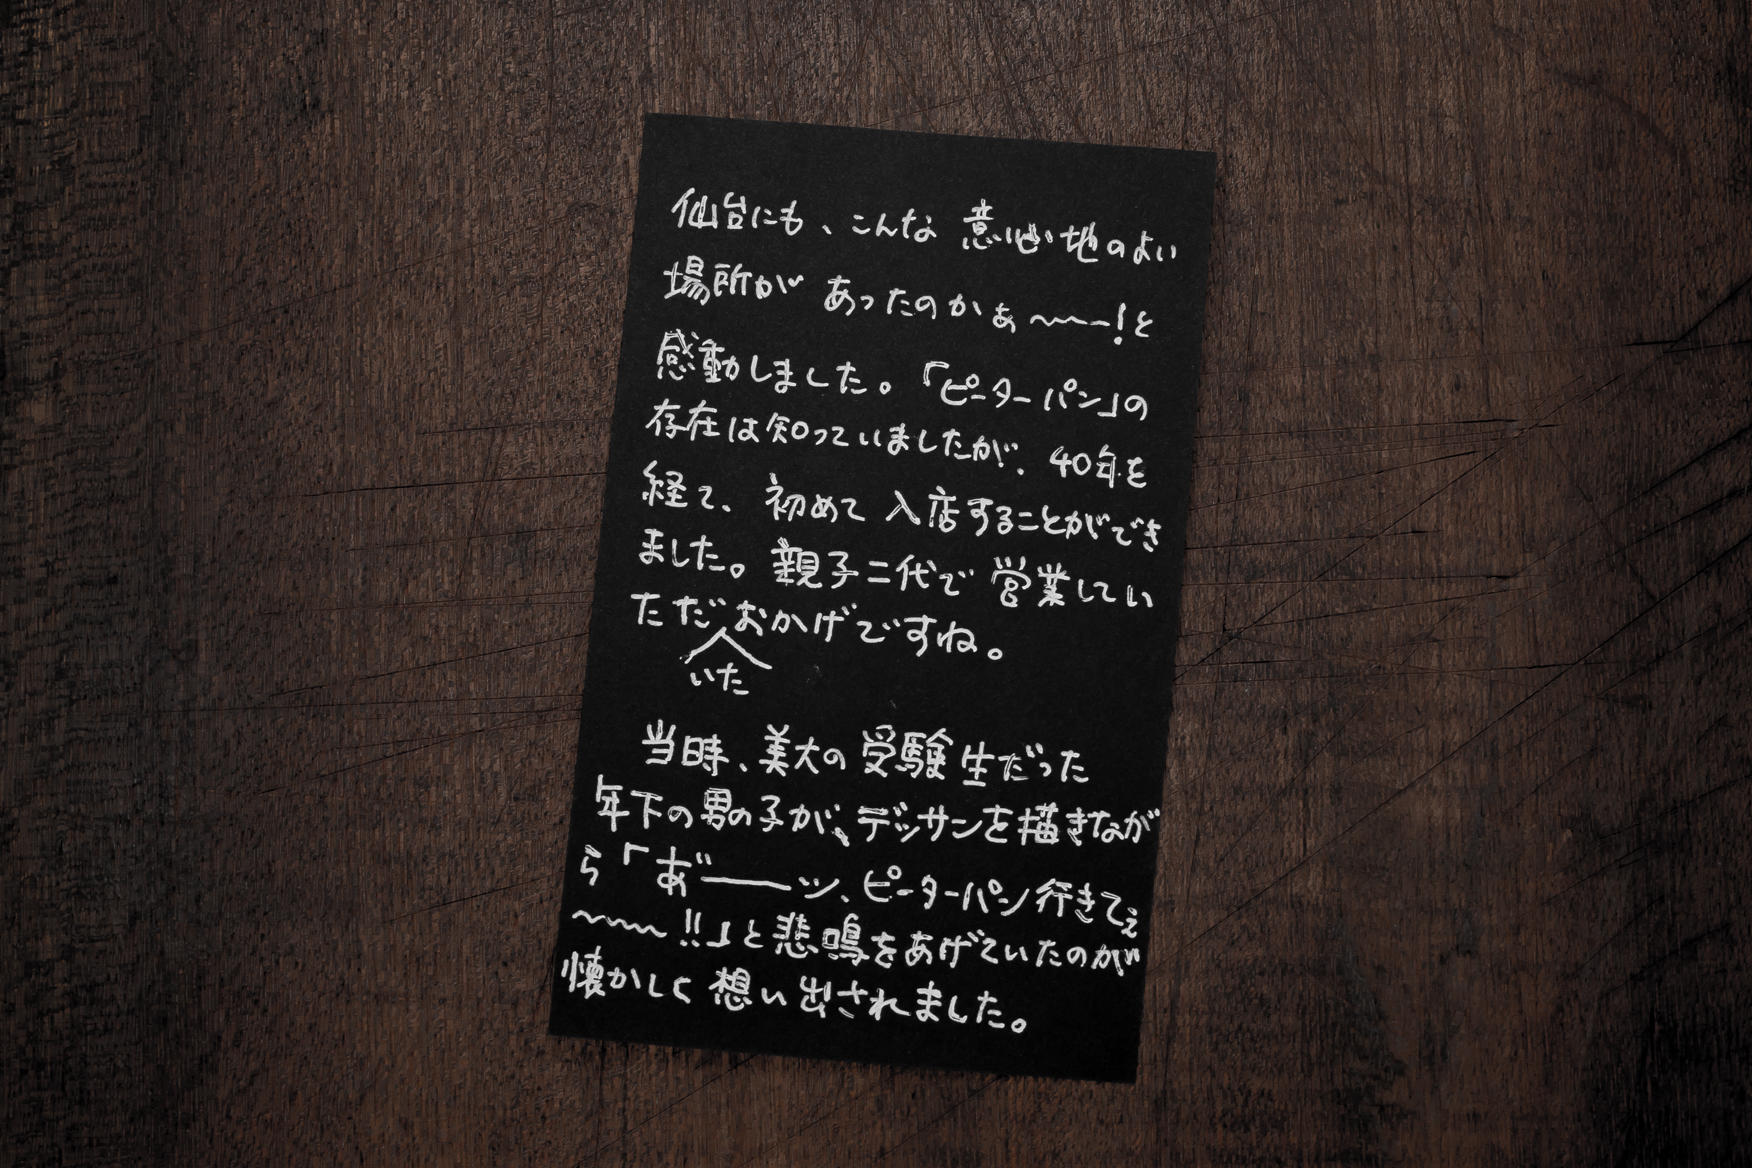 仙台にも、こんな意心地のよい
場所があったのかぁ〜〜〜!と
感動しました。「ピーターパン」の
存在は知っていましたが、40年を
経て、初めて入店することができ
ました。親子二代で営業してい
ただおかげですね。
いた
当時、美大の受験生だった
年下の男の子が、デッサンを描きなが
ら「あ゛ーーッ、ピーターパン行きてぇ
〜〜〜!!」と悲鳴をあげていたのが
懐かしく想い出されました。